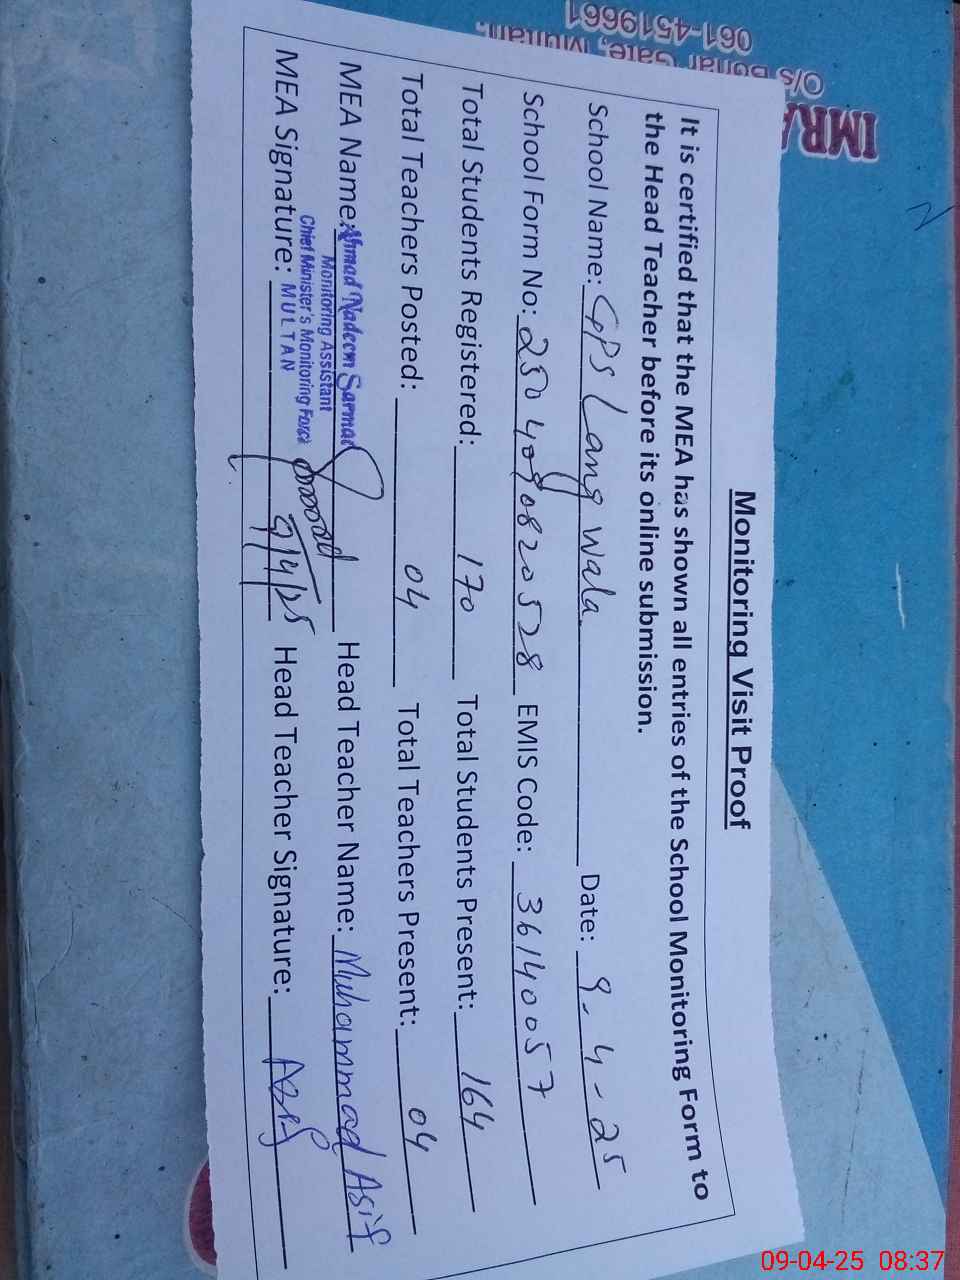 Monitoring Visit Proof
It is certified that the MEA has shown all entries of the School Monitoring Form to
the Head Teacher before its online submission.
School Name: GPS Lang wala Date: 9-4-25
School Form No: 2504090820528 EMIS Code: 36140057
Total Students Registered: 170 Total Students Present: 164
Total Teachers Posted: 04 Total Teachers Present: 04
MEA Name: Ahmad Nadeem Sarmad Head Teacher Name: Muhammad Asif
Monitoring Assistant
Chief Minister's Monitoring Force
MULTAN
MEA Signature: 9/4/25 Head Teacher Signature: Asif
IMRA
O/s Bohar Gate, Multan.
061-4519661
09-04-25 08:37